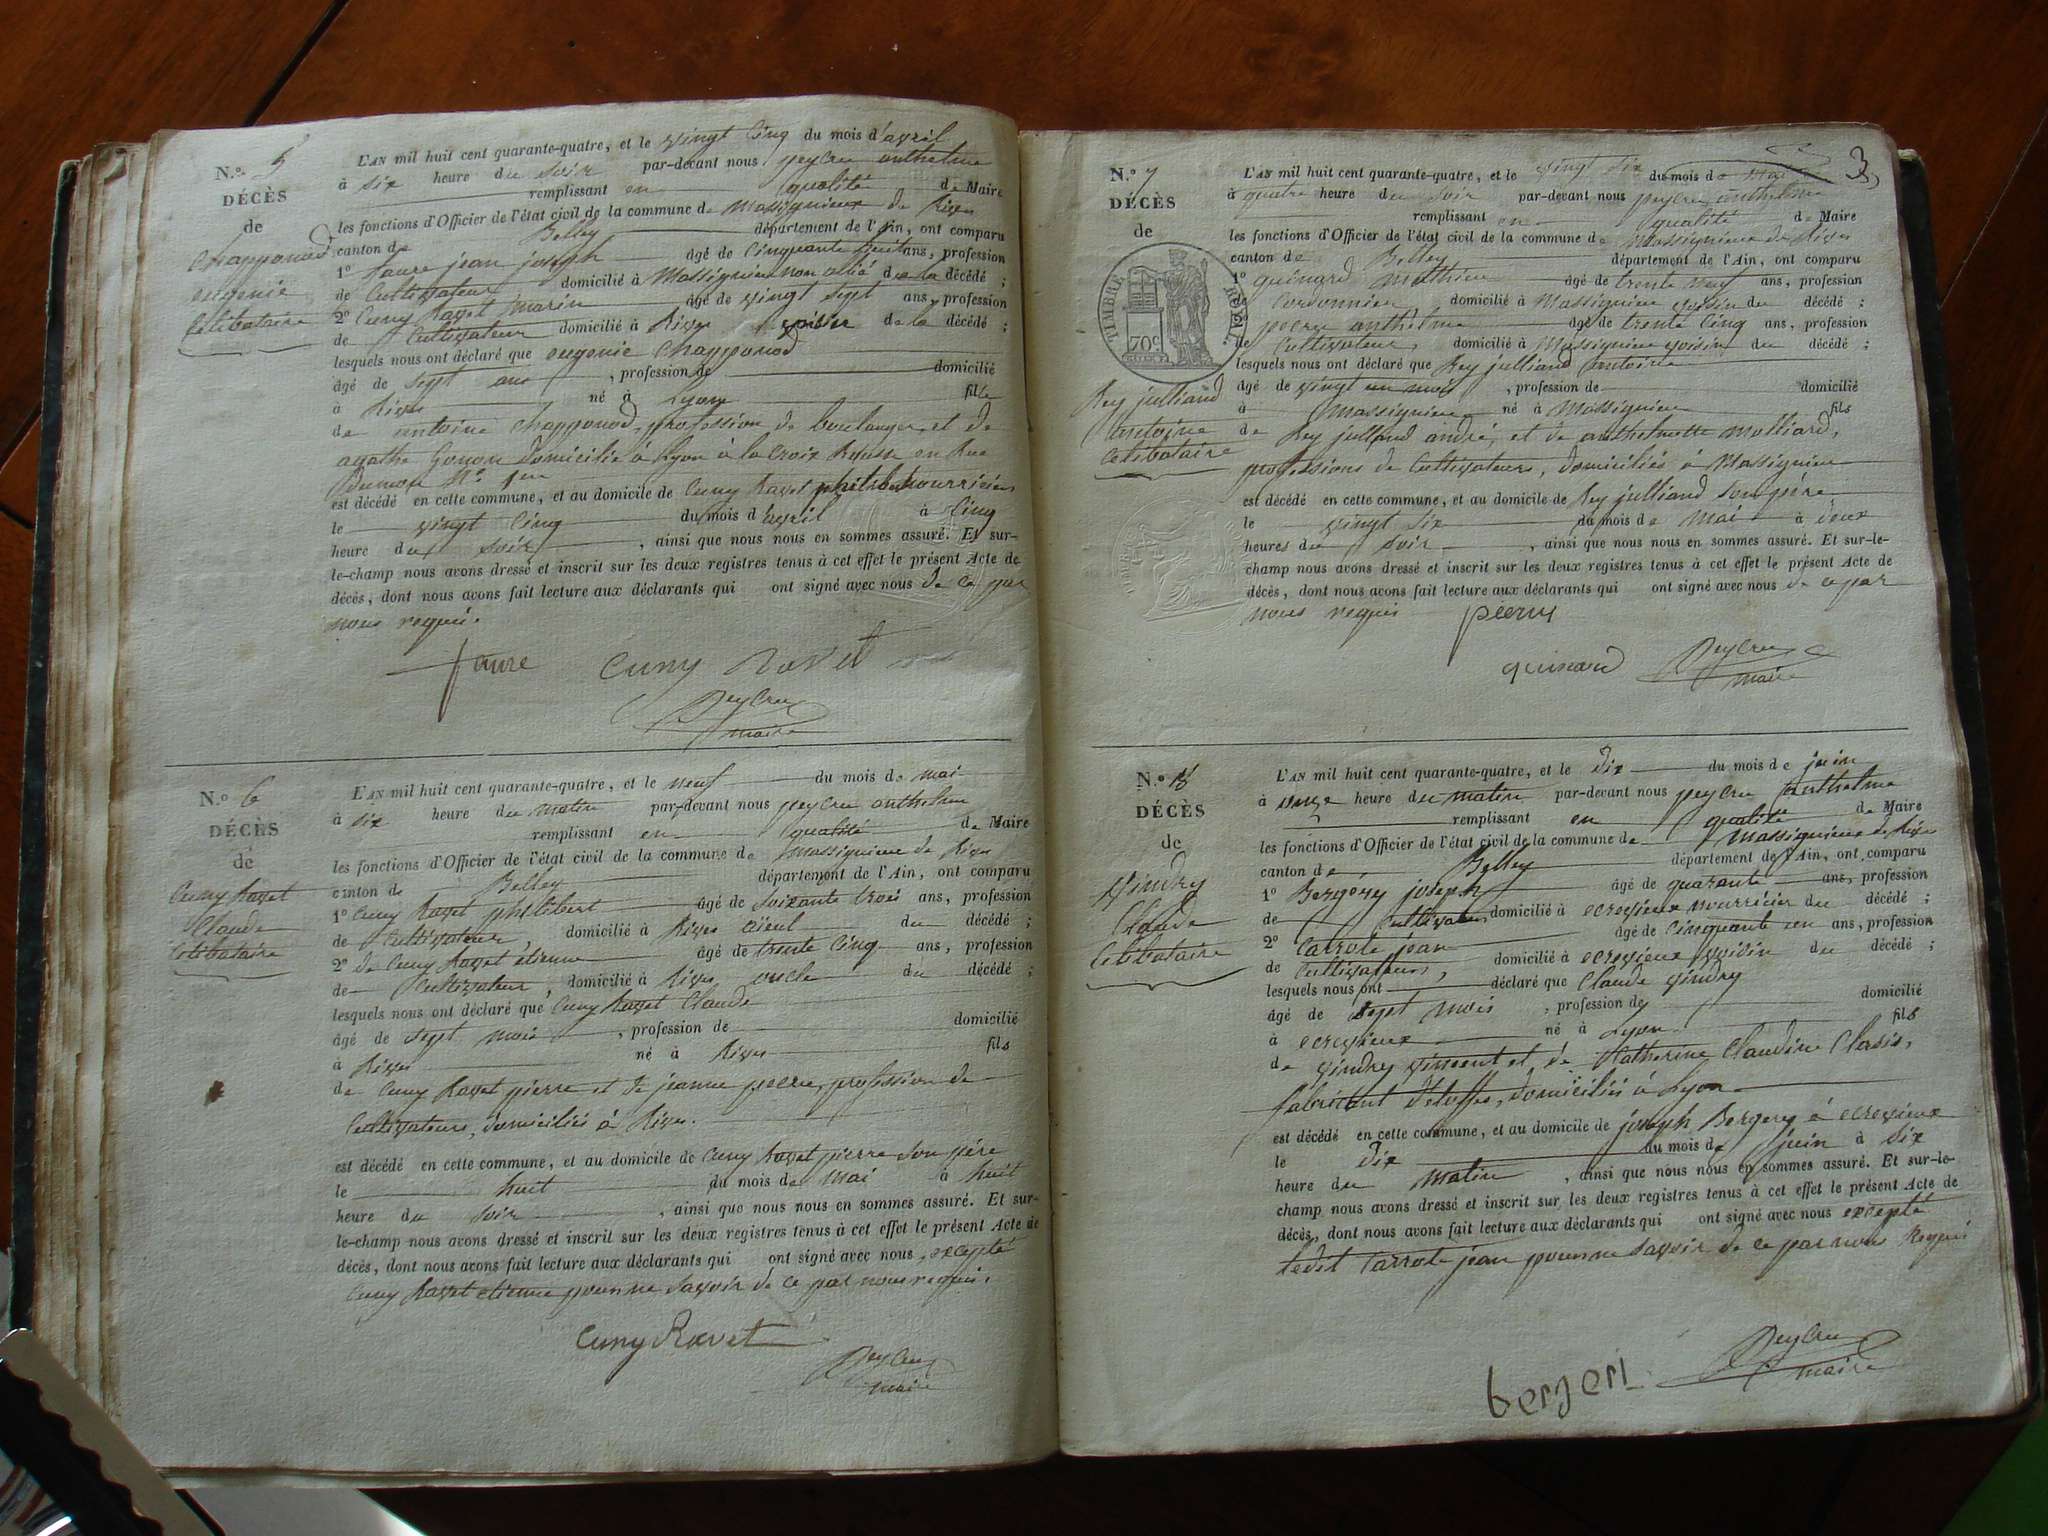 N.° 5
DÉCÈS
de
Chapponod
eugenie
Celibataire
L'AN mil huit cent quarante-quatre, et le vingt Cinq du mois d'avril
à six heure du soir par-devant nous peycru anthelme
remplissant en qualité de Maire
les fonctions d'Officier de l'état civil de la commune de Massignieux de Rives
canton de Belley département de l'Ain, ont comparu
1° faure jean joseph âgé de Cinquante huit ans, profession
de Cultivateur domicilié à Massignieu non alié de la décédé ;
2° Cuny Ravet marin âgé de vingt sept ans, profession
de Cultivateur domicilié à Rives voisin de la décédé ;
lesquels nous ont déclaré que eugenie Chapponod
âgé de sept ans , profession de domicilié
à Rives né à Lyon fille
de antoine Chapponod, profession de boulanger, et de
agathe Gonon domicilié à Lyon à la Croix Rousse en Rue
Dumon N° 1er
est décédé en cette commune, et au domicile de Cuny Ravet philibert nourricier
le vingt Cinq du mois d'avril à Cinq
heure du soir , ainsi que nous nous en sommes assuré. Et sur-
le-champ nous avons dressé et inscrit sur les deux registres tenus à cet effet le présent Acte de
décès, dont nous avons fait lecture aux déclarants qui ont signé avec nous de ce par
nous requi.
faure Cuny Ravet
Peycru
maire
N.° 6
DÉCÈS
de
Cuny Ravet
Claude
Celibataire
L'AN mil huit cent quarante-quatre, et le neuf du mois de mai
à six heure du matin par-devant nous peycru anthelme
remplissant en qualité de Maire
les fonctions d'Officier de l'état civil de la commune de Massignieu de Rives
canton de Belley département de l'Ain, ont comparu
1° Cuny Ravet philibert âgé de soixante trois ans, profession
de Cultivateur, domicilié à Rives aïeul du décédé ;
2° de Cuny Ravet etienne âgé de trente Cinq ans, profession
de Cultivateur, domicilié à Rives oncle du décédé ;
lesquels nous ont déclaré que Cuny Ravet Claude
âgé de sept mois , profession de domicilié
à Rives né à Rives fils
de Cuny Ravet pierre et de jeanne peeru, profession de
Cultivateurs, domiciliés à Rives.
est décédé en cette commune, et au domicile de Cuny Ravet pierre son père
le huit du mois de mai à huit
heure du soir , ainsi que nous nous en sommes assuré. Et sur-
le-champ nous avons dressé et inscrit sur les deux registres tenus à cet effet le présent Acte de
décès, dont nous avons fait lecture aux déclarants qui ont signé avec nous, excepté
Cuny Ravet etienne pour ne savoir de ce par nous requi.
Cuny Ravet
Peycru
maire
3
N.° 7
DÉCÈS
de
TIMBRE ROYAL
70c
Rey julliand
antoine
Celibataire
L'AN mil huit cent quarante-quatre, et le vingt six du mois de Mai
à quatre heure du soir par-devant nous peycru anthelme
remplissant en qualité de Maire
les fonctions d'Officier de l'état civil de la commune de Massignieu de Rives
canton de Belley département de l'Ain, ont comparu
1° guinard mathieu âgé de trente neuf ans, profession
Cordonnier, domicilié à Massignieu voisin du décédé ;
peeru anthelme âgé de trente Cinq ans, profession
de Cultivateur, domicilié à Massignieu voisin du décédé ;
lesquels nous ont déclaré que Rey julliand antoine
âgé de vingt un mois , profession de domicilié
à Massignieu né à Massignieu fils
de Rey julliand andré, et de anthelmette molliard,
professions de Cultivateurs, domiciliés à Massignieu
est décédé en cette commune, et au domicile de Rey julliand son père
le vingt six du mois de Mai à deux
heures du soir , ainsi que nous nous en sommes assuré. Et sur-le-
champ nous avons dressé et inscrit sur les deux registres tenus à cet effet le présent Acte de
décès, dont nous avons fait lecture aux déclarants qui ont signé avec nous de ce par
nous requis peeru
guinard Peycru
maire
N.° 8
DÉCÈS
de
Vindry
Claude
Celibataire
L'AN mil huit cent quarante-quatre, et le dix du mois de juin
à onze heure du matin par-devant nous peycru anthelme
remplissant en qualité de Maire
les fonctions d'Officier de l'état civil de la commune de Massignieux de Rives
canton de Belley département de l'Ain, ont comparu
1° Bergéry joseph âgé de quarante ans, profession
de Cultivateur domicilié à ecrevieux nourricier du décédé ;
2° Carrote jean âgé de Cinquante un ans, profession
de Cultivateurs, domicilié à ecrevieux voisin du décédé ;
lesquels nous ont déclaré que Claude Vindry
âgé de sept mois , profession de domicilié
à ecrevieux né à Lyon fils
de Vindry vincent et de Katherine Claudine Clasis,
fabricant d'etoffes, domiciliés à Lyon
est décédé en cette commune, et au domicile de joseph Bergery à ecrevieux
le dix du mois de juin à six
heure du matin , ainsi que nous nous en sommes assuré. Et sur-le-
champ nous avons dressé et inscrit sur les deux registres tenus à cet effet le présent Acte de
décès, dont nous avons fait lecture aux déclarants qui ont signé avec nous excepté
ledit Carrote jean pour ne savoir de ce par nous Requi
bergeri Peycru
maire